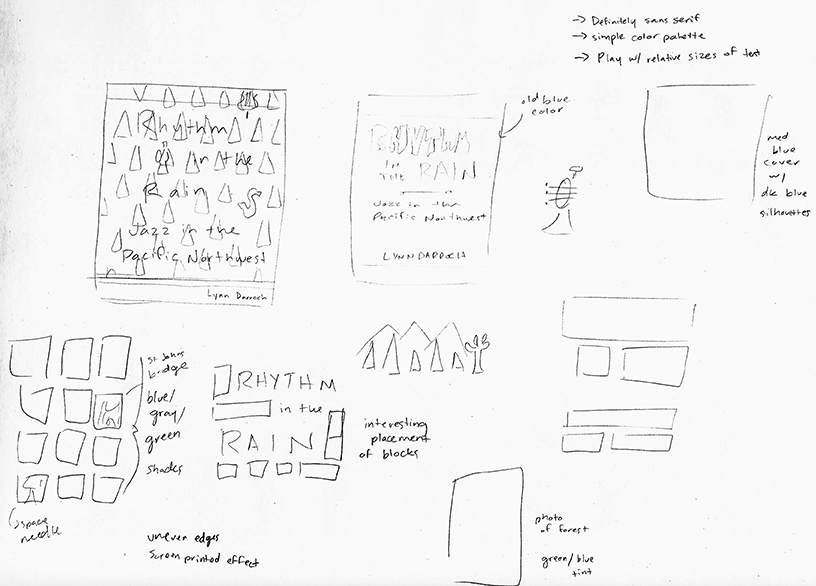 → Definitely sans serif
→ simple color palette
→ Play w/ relative sizes of text
Rhythm
in the
Rain
Jazz in the
Pacific Northwest
Lynn Darroch
RHYTHM
IN
THE RAIN
Jazz in the
Pacific Northwest
LYNN DARROCH
old blue
color
med
blue
cover
w/
dk blue
silhouettes
St Johns
bridge
blue/
gray/
green
shades
space
needle
RHYTHM
in the
RAIN
interesting
placement
of blocks
uneven edges
screen printed effect
photo
of forest
green/blue
tint